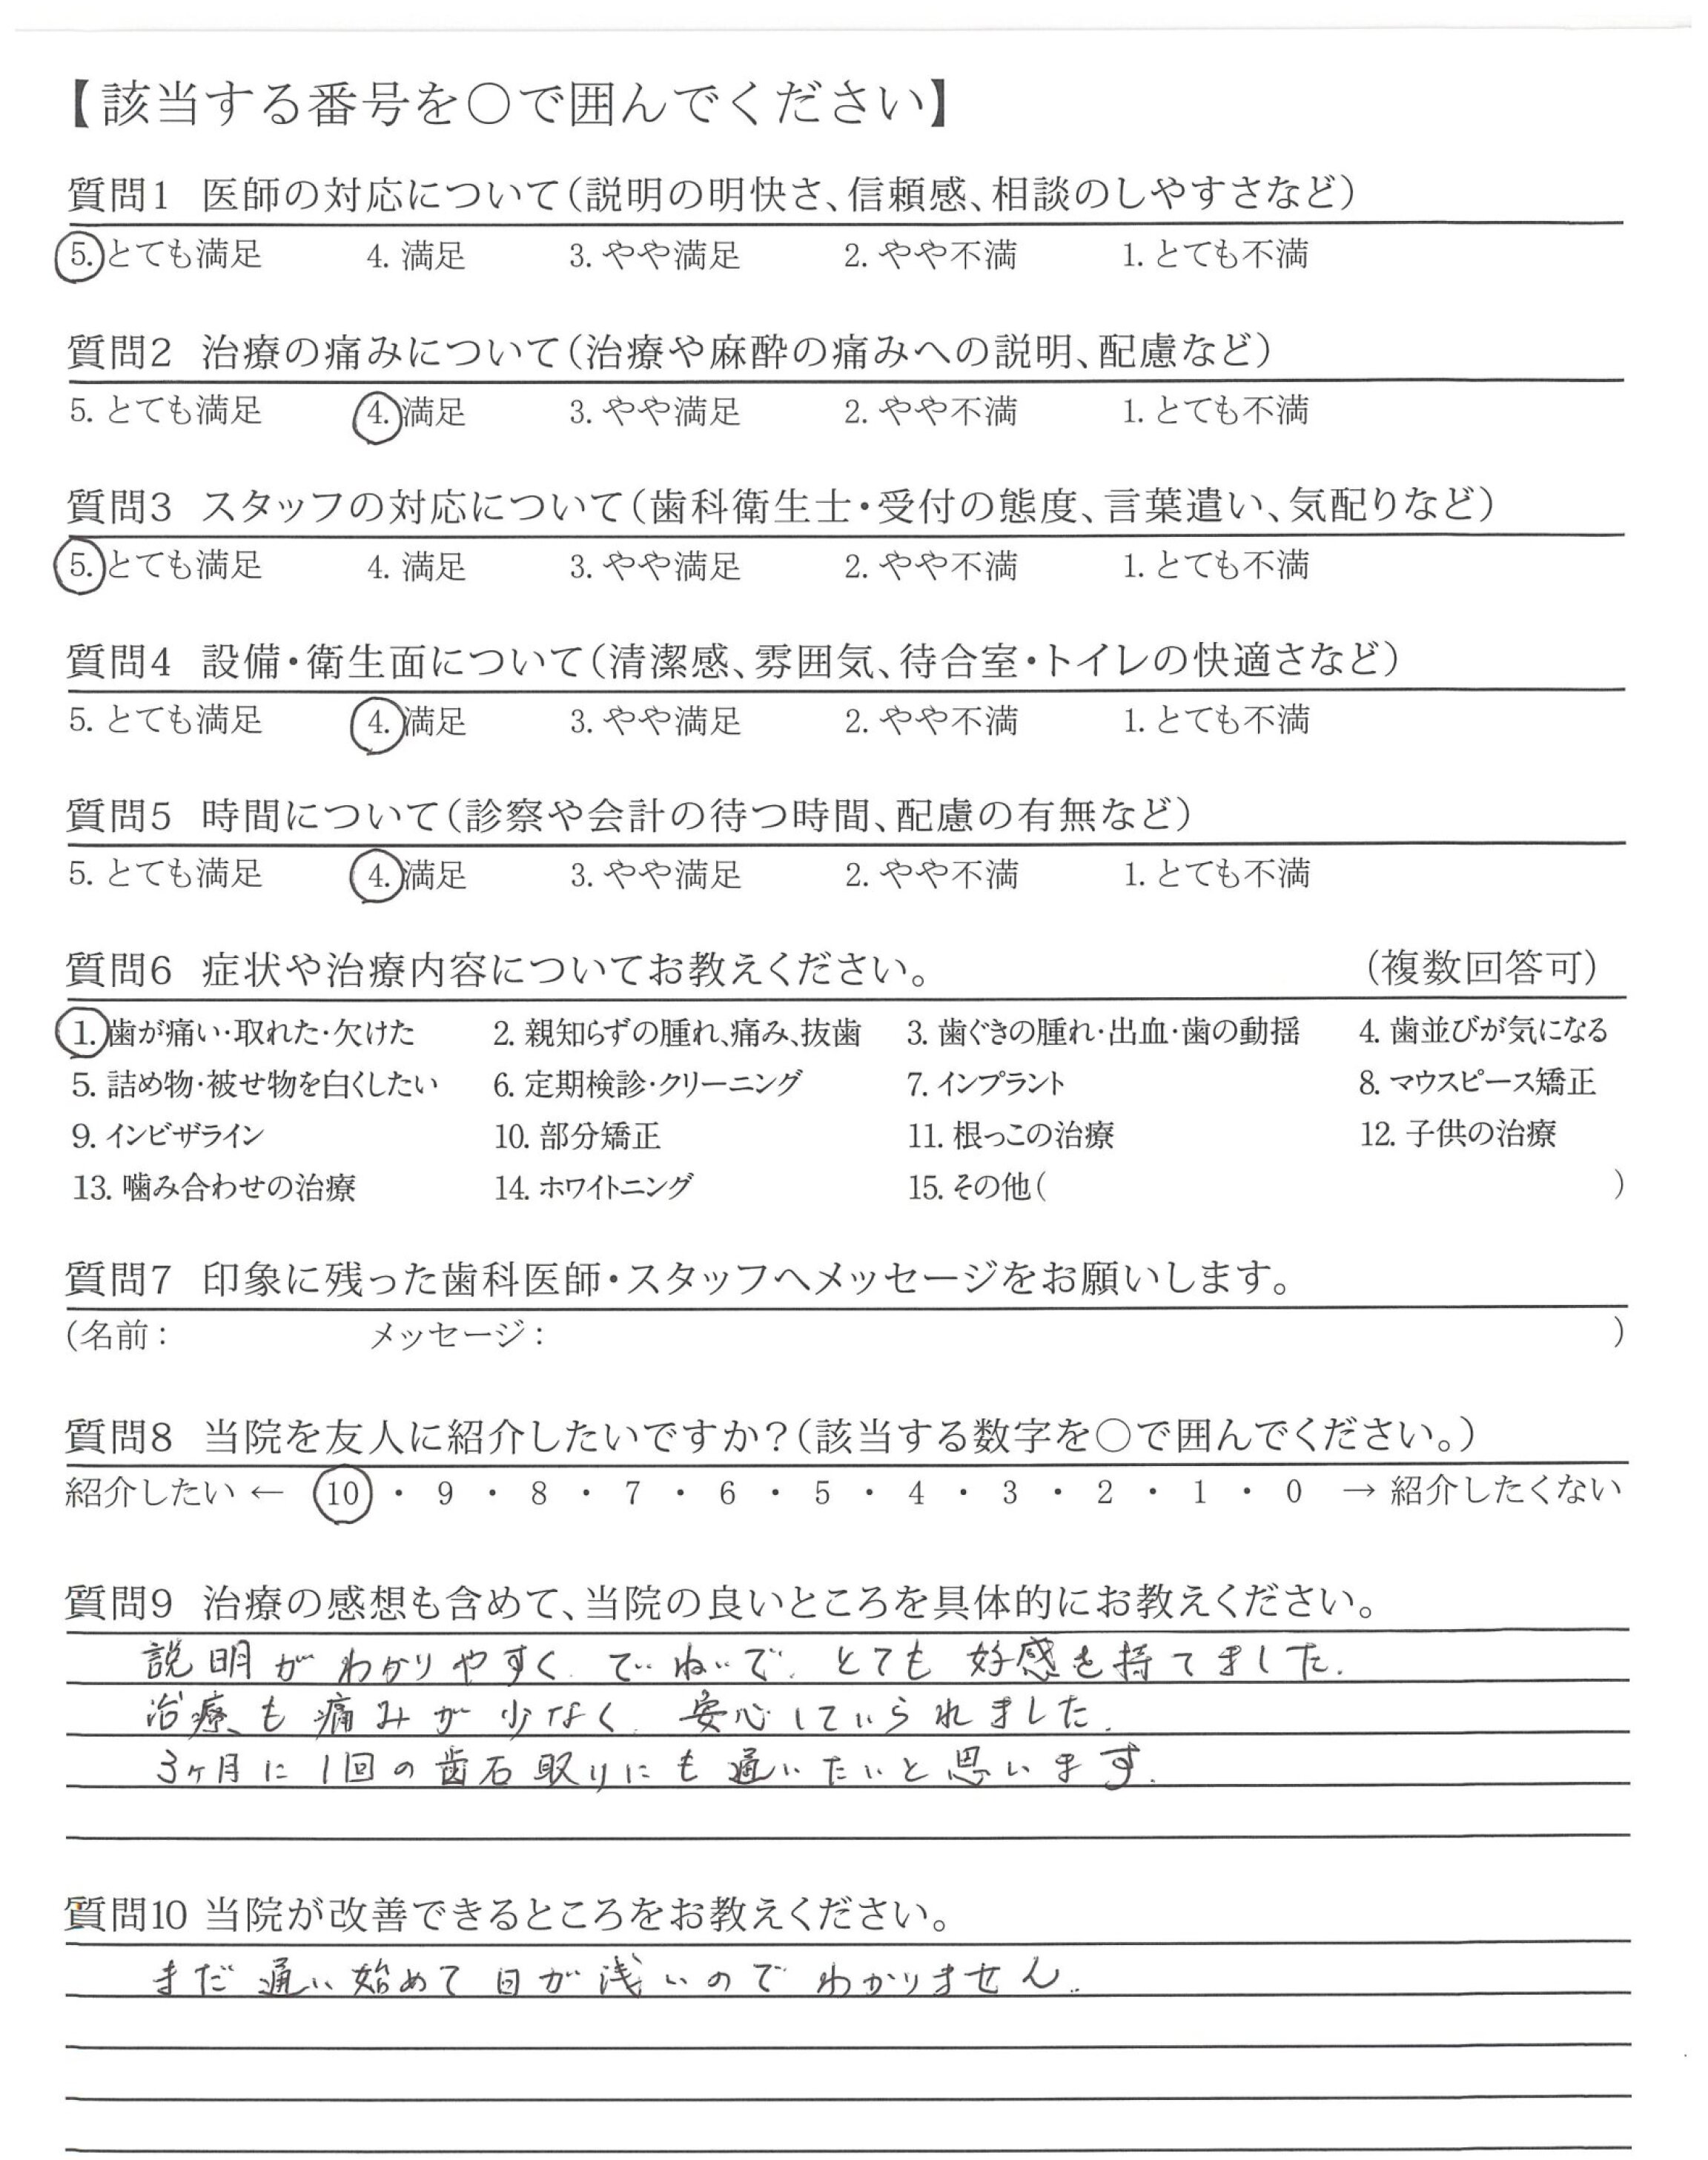 【該当する番号を○で囲んでください】
質問1 医師の対応について(説明の明快さ、信頼感、相談のしやすさなど)
5. とても満足 4. 満足 3. やや満足 2. やや不満 1. とても不満
質問2 治療の痛みについて(治療や麻酔の痛みへの説明、配慮など)
5. とても満足 4. 満足 3. やや満足 2. やや不満 1. とても不満
質問3 スタッフの対応について(歯科衛生士・受付の態度、言葉遣い、気配りなど)
5. とても満足 4. 満足 3. やや満足 2. やや不満 1. とても不満
質問4 設備・衛生面について(清潔感、雰囲気、待合室・トイレの快適さなど)
5. とても満足 4. 満足 3. やや満足 2. やや不満 1. とても不満
質問5 時間について(診察や会計の待つ時間、配慮の有無など)
5. とても満足 4. 満足 3. やや満足 2. やや不満 1. とても不満
質問6 症状や治療内容についてお教えください。 (複数回答可)
1. 歯が痛い・取れた・欠けた 2. 親知らずの腫れ、痛み、抜歯 3. 歯ぐきの腫れ・出血・歯の動揺 4. 歯並びが気になる
5. 詰め物・被せ物を白くしたい 6. 定期検診・クリーニング 7. インプラント 8. マウスピース矯正
9. インビザライン 10. 部分矯正 11. 根っこの治療 12. 子供の治療
13. 噛み合わせの治療 14. ホワイトニング 15. その他( )
質問7 印象に残った歯科医師・スタッフへメッセージをお願いします。
(名前: メッセージ: )
質問8 当院を友人に紹介したいですか?(該当する数字を○で囲んでください。)
紹介したい ← 10 ・ 9 ・ 8 ・ 7 ・ 6 ・ 5 ・ 4 ・ 3 ・ 2 ・ 1 ・ 0 → 紹介したくない
質問9 治療の感想も含めて、当院の良いところを具体的にお教えください。
説明がわかりやすく、ていねいで、とても好感を持てました.
治療も痛みが少なく、安心していられました.
3ヶ月に1回の歯石取りにも通いたいと思います.
質問10 当院が改善できるところをお教えください。
まだ通い始めて日が浅いのでわかりません.